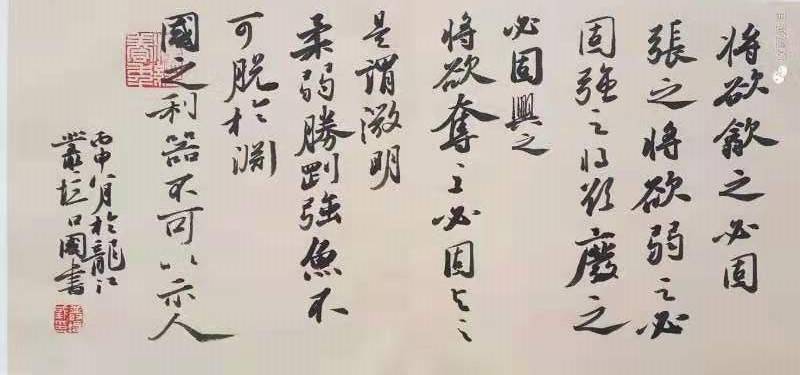 将欲歙之必固
張之将欲弱之必
固強之将欲廢之
必固興之
将欲奪之必固与之
是謂微明
柔弱勝剛強魚不
可脱於淵
國之利器不可以示人
丙申月於龍江
國書